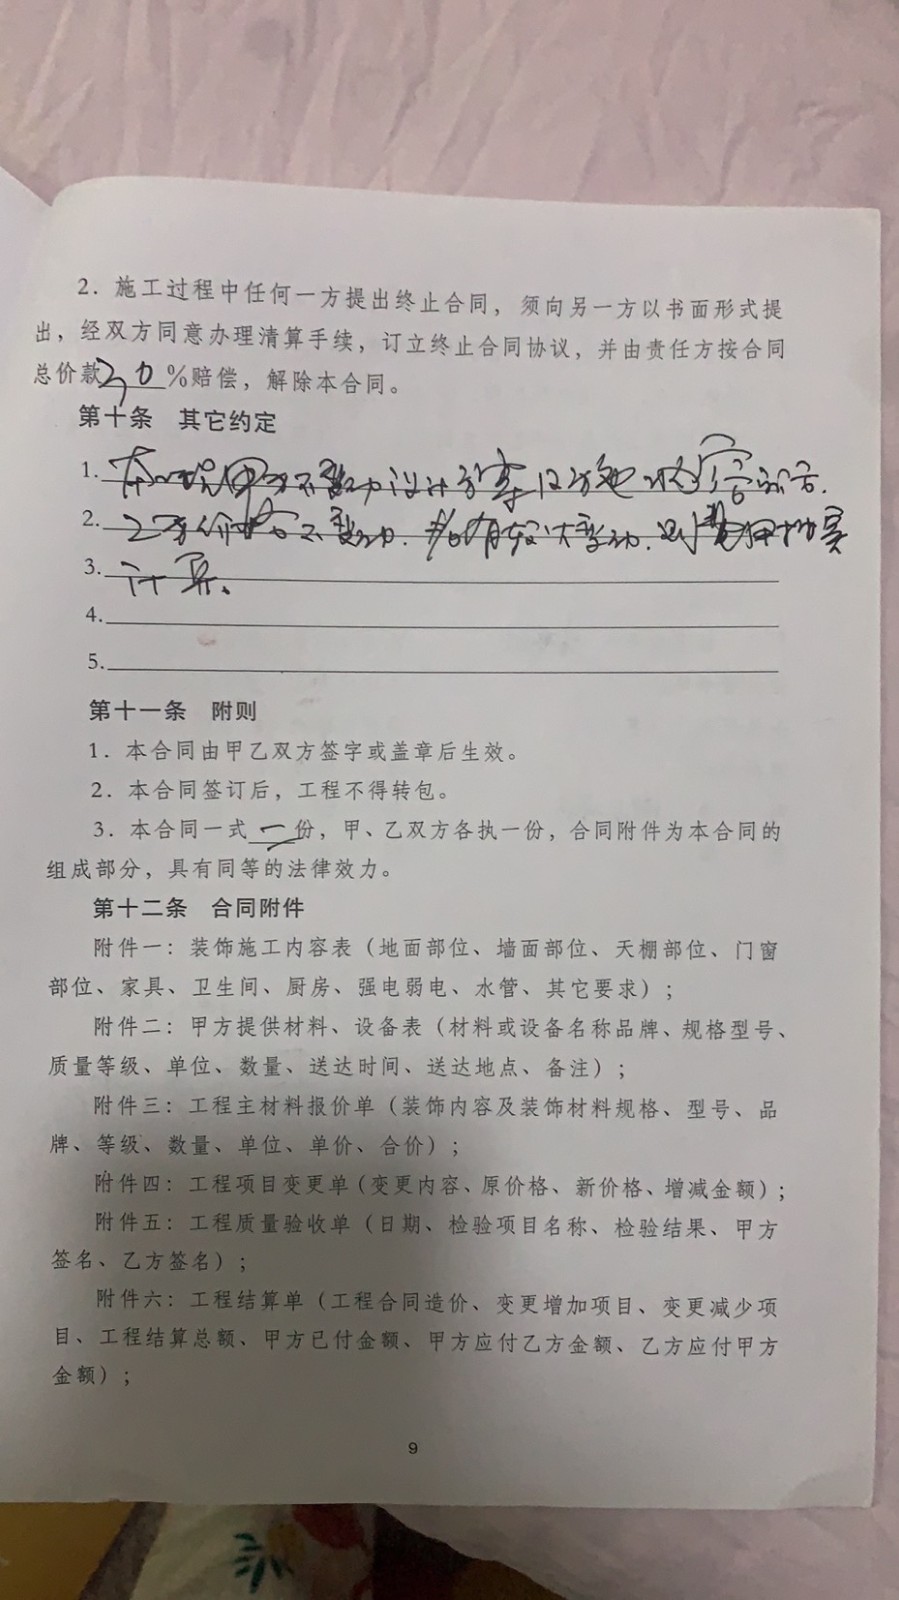 2. 施工过程中任何一方提出终止合同，须向另一方以书面形式提
出，经双方同意办理清算手续，订立终止合同协议，并由责任方按合同
总价款30%赔偿，解除本合同。
第十条 其它约定
1. 甲方不变动设计方案
2. 不变动. 有较大变动. 则
3. 计算.
4.
5.
第十一条 附则
1. 本合同由甲乙双方签字或盖章后生效。
2. 本合同签订后，工程不得转包。
3. 本合同一式二份，甲、乙双方各执一份，合同附件为本合同的
组成部分，具有同等的法律效力。
第十二条 合同附件
附件一：装饰施工内容表（地面部位、墙面部位、天棚部位、门窗
部位、家具、卫生间、厨房、强电弱电、水管、其它要求）；
附件二：甲方提供材料、设备表（材料或设备名称品牌、规格型号、
质量等级、单位、数量、送达时间、送达地点、备注）；
附件三：工程主材料报价单（装饰内容及装饰材料规格、型号、品
牌、等级、数量、单位、单价、合价）；
附件四：工程项目变更单（变更内容、原价格、新价格、增减金额）；
附件五：工程质量验收单（日期、检验项目名称、检验结果、甲方
签名、乙方签名）；
附件六：工程结算单（工程合同造价、变更增加项目、变更减少项
目、工程结算总额、甲方已付金额、甲方应付乙方金额、乙方应付甲方
金额）；
9